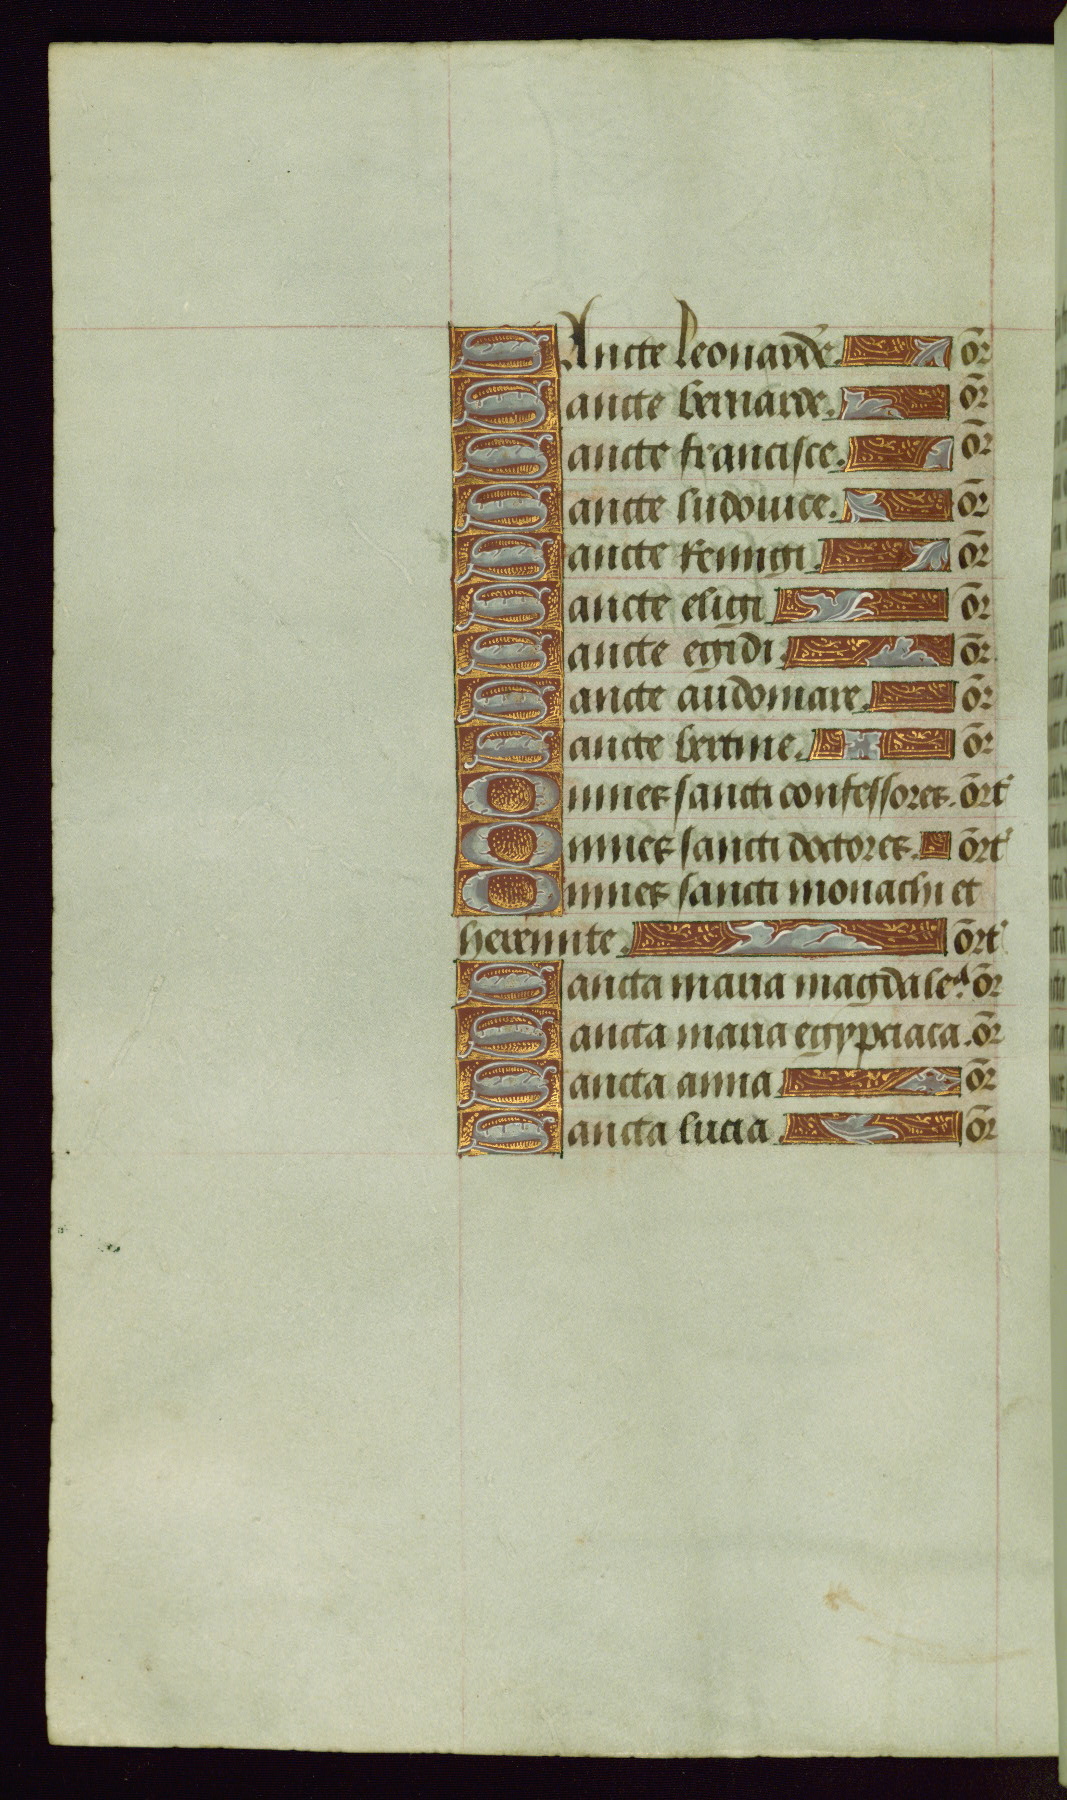 SAncte leonarde. or̄
Sancte bernarde. or̄
Sancte francisce. or̄
Sancte ludouice. or̄
Sancte remigi or̄
Sancte eligi or̄
Sancte egidi. or̄
Sancte audomare. or̄
Sancte bertine. or̄
Omnes sancti confessores. or̄t
Omnes sancti doctores. or̄t
Omnes sancti monachi et
heremite. or̄t
Sancta maria magdaleᵃ. or̄
Sancta maria egypciaca. or̄
Sancta anna or̄
Sancta lucia. or̄